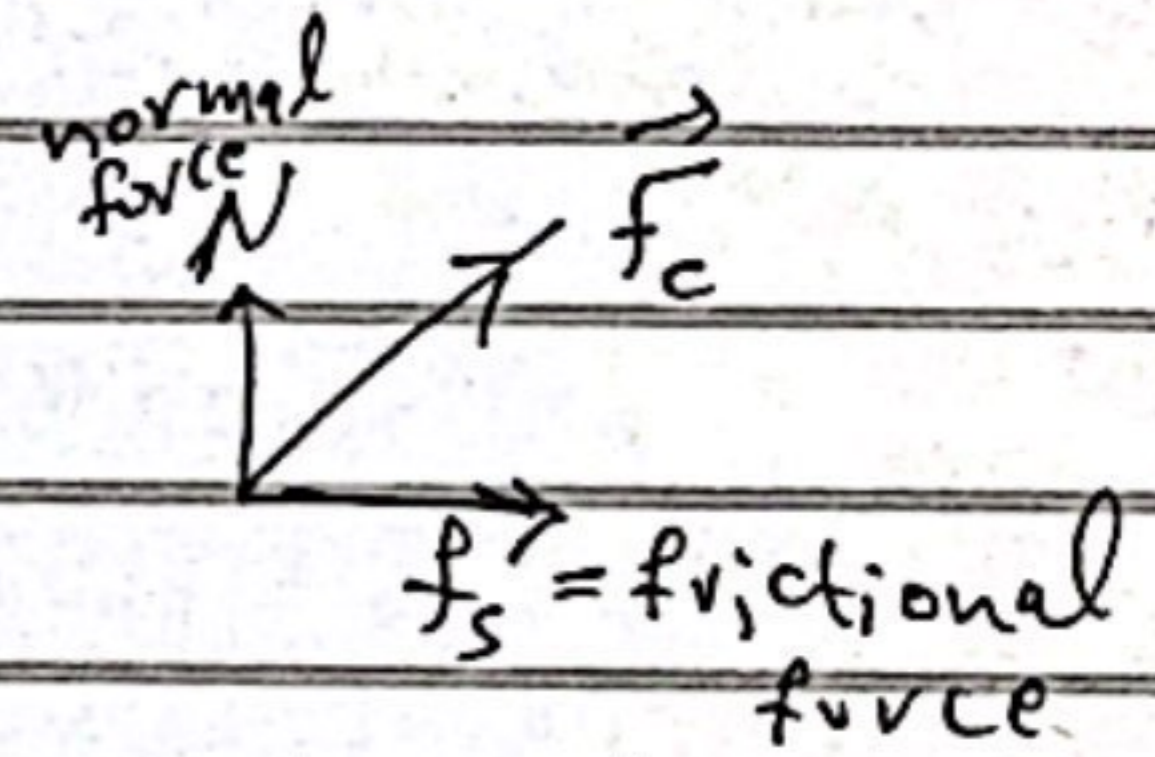 normal
force
N
→
Fc
fs = frictional
force